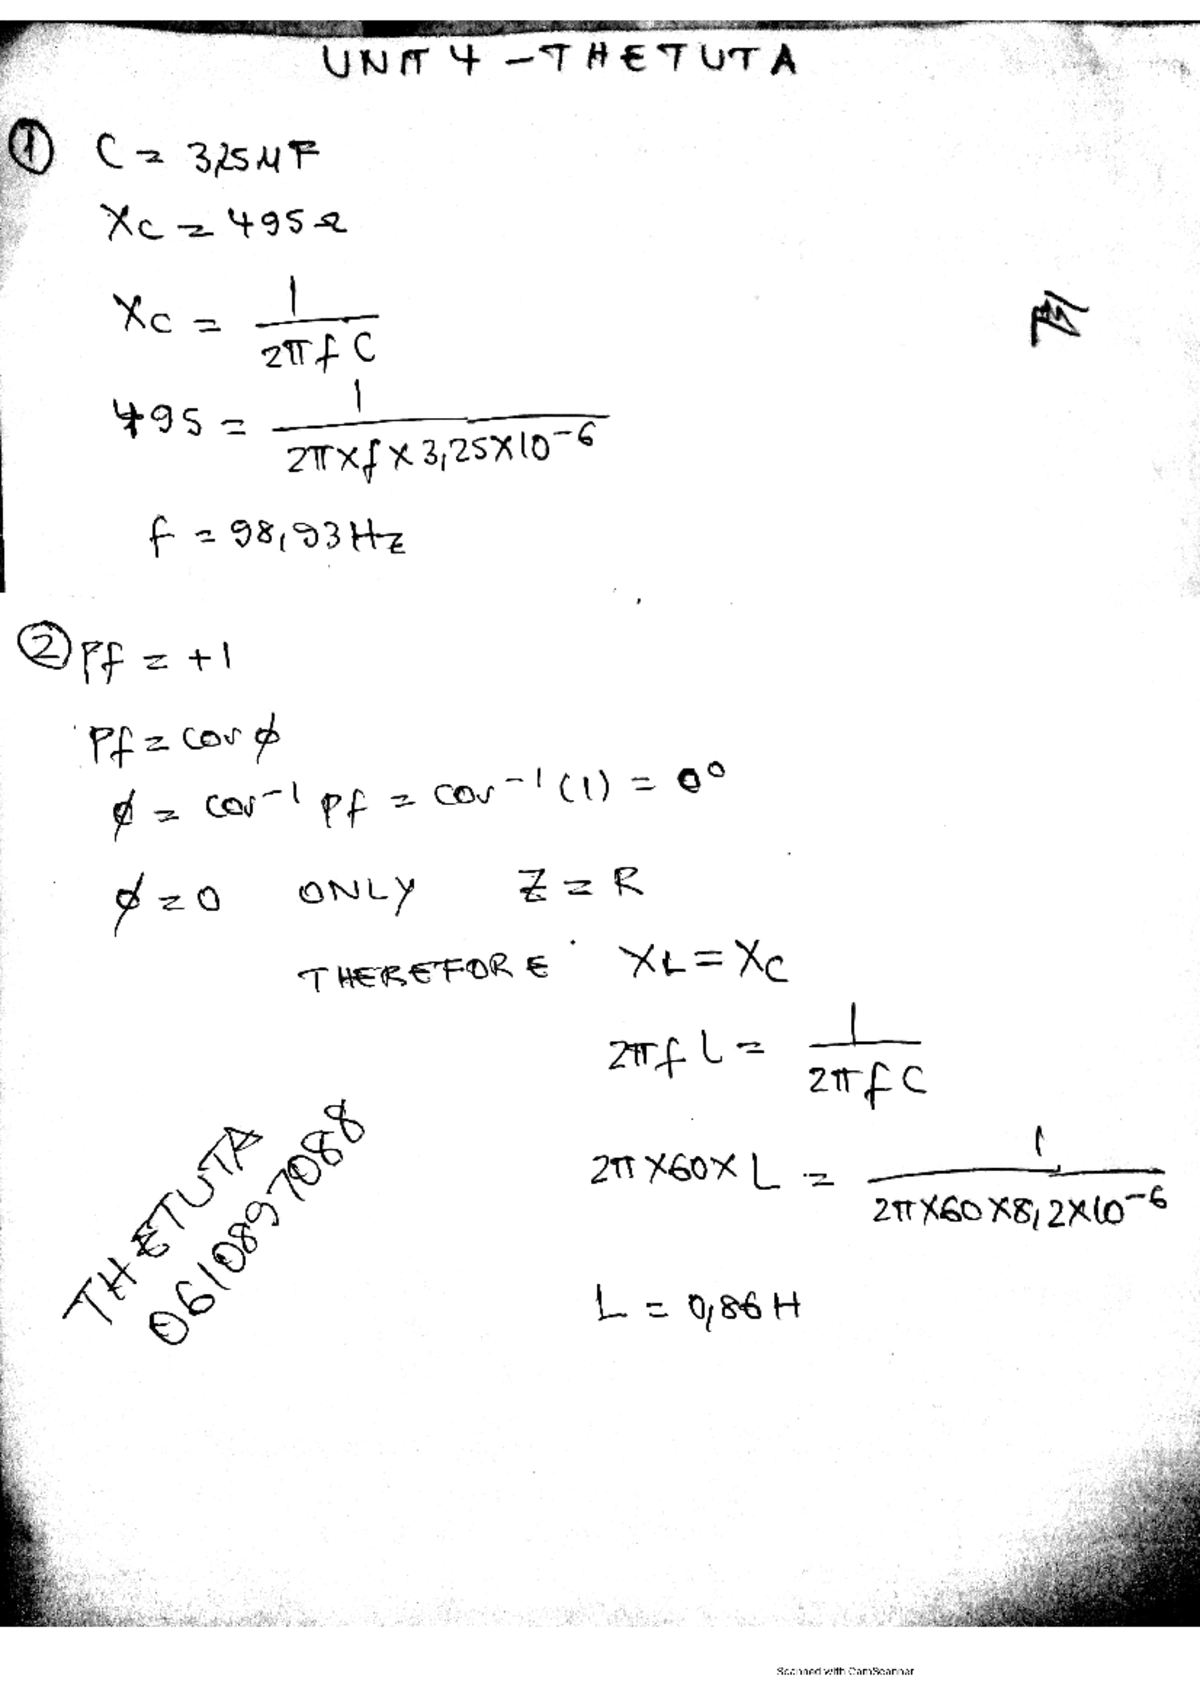 UNIT 4 - THETUTA
① C = 3,25 μF
Xc = 495 Ω
Xc = 1 / 2πfC
495 = 1 / 2π×f×3,25×10⁻⁶
f = 98,93 Hz
② Pf = +1
Pf = cos ϕ
ϕ = cos⁻¹ Pf = cos⁻¹ (1) = 0°
ϕ = 0 ONLY Z = R
THEREFORE XL = XC
2πf L = 1 / 2πf C
2π×60×L = 1 / 2π×60×8,2×10⁻⁶
L = 0,86 H
THETUTA
0610897088
Scanned with CamScanner